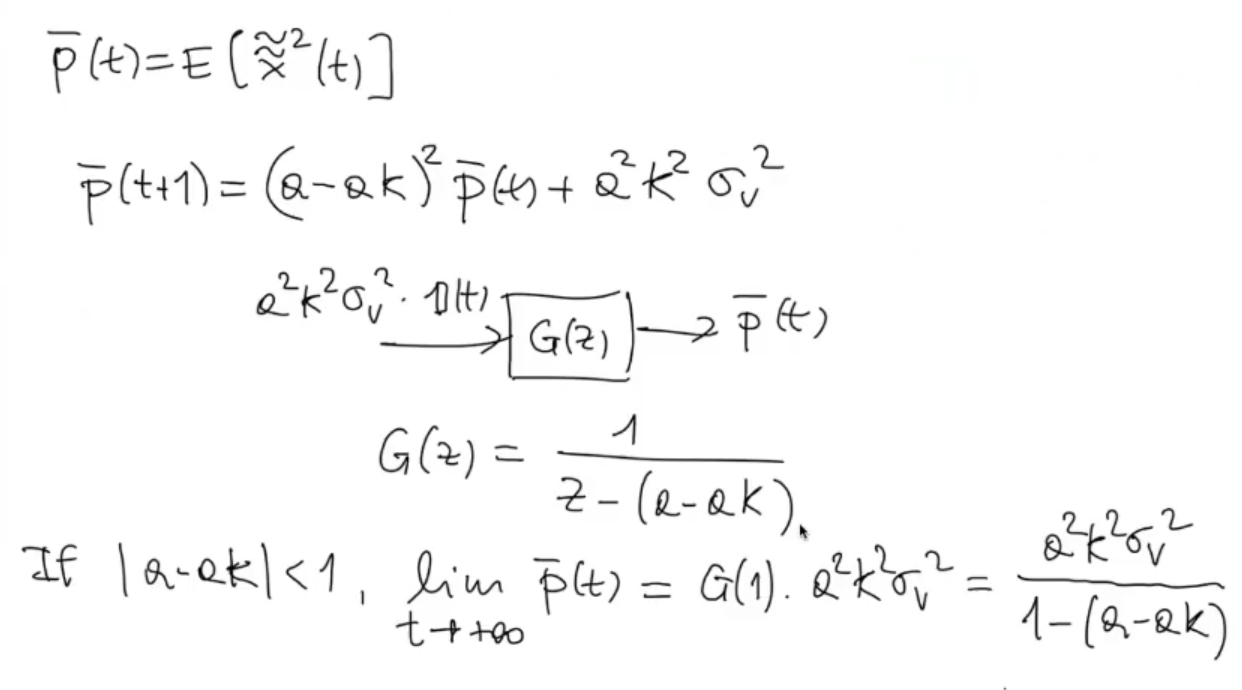 p̄(t)=E[x̃̃²(t)]
p̄(t+1)=(a-ak)²p̄(t)+a²k²σᵥ²
a²k²σᵥ²·𝟙(t) → G(z) → p̄(t)
G(z) = 1 / (z-(a-ak))
If |a-ak|<1, lim t→+∞ p̄(t) = G(1)·a²k²σᵥ² = a²k²σᵥ² / (1-(a-ak))